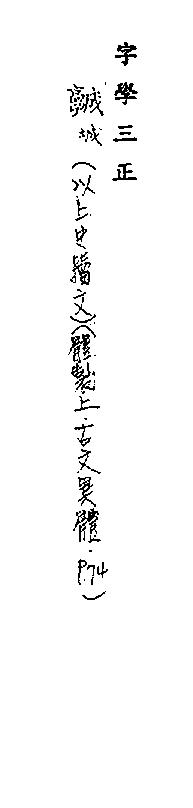 字學三正
𩫨城(以上史籀文)(體製上.古文異體.P.74)